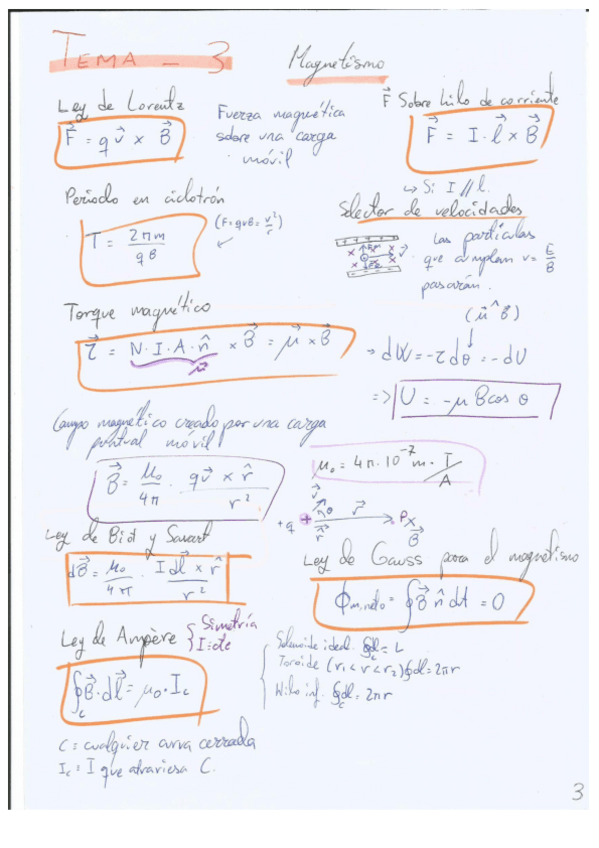 TEMA - 3
Magnetismo
Ley de Lorentz
F⃗ = q v⃗ × B⃗
Fuerza magnética
sobre una carga
móvil
F⃗ Sobre hilo de corriente
F⃗ = I · l⃗ × B⃗
↳ Si I // l.
Periodo en ciclotrón
T = 2πm / qB
(F = qvB = v²/r)
Selector de velocidades
Las partículas
que cumplan v = E/B
pasarán.
Torque magnético
τ⃗ = N · I · A · n̂ × B⃗ = μ⃗ × B⃗
μ⃗
(μ⃗ ^ B⃗)
→ dW = -τ dθ = -dU
=> U = -μ B cos θ
Campo magnético creado por una carga
puntual móvil
B⃗ = μ₀/4π · q v⃗ × r̂ / r²
μ₀ = 4π · 10⁻⁷ m · T/A
+q + v⃗ θ r̂ r⃗ P × B⃗
Ley de Biot y Savart
dB⃗ = μ₀/4π · I dl⃗ × r̂ / r²
Ley de Gauss para el magnetismo
ϕm,neto = ∮ B⃗ n̂ dA = 0
Ley de Ampère { Simetría
I = cte
∮c B⃗ · dl⃗ = μ₀ · Ic
Solenoide ideal. ∮c dl = L
Toroide (r₁ < r < r₂) ∮ dl = 2πr
Hilo inf. ∮c dl = 2πr
C = cualquier curva cerrada
Ic = I que atraviesa C.
3